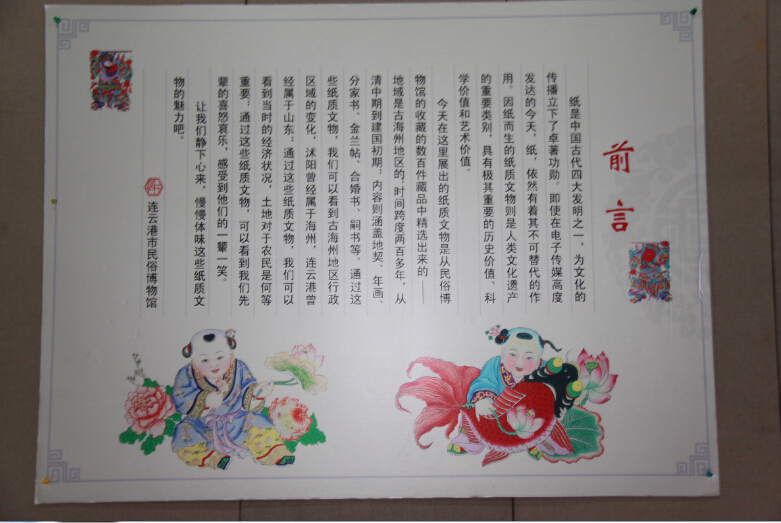 前言
纸是中国古代四大发明之一，为文化的
传播立下了卓著功勋。即使在电子传媒高度
发达的今天，纸，依然有着其不可替代的作
用。因纸而生的纸质文物则是人类文化遗产
的重要类别，具有极其重要的历史价值、科
学价值和艺术价值。
今天在这里展出的纸质文物是从民俗博
物馆的收藏的数百件藏品中精选出来的——
地域是古海州地区的，时间跨度两百多年，从
清中期到建国初期；内容则涵盖地契、年画、
分家书、金兰帖、合婚书、嗣书等。通过这
些纸质文物，我们可以看到古海州地区行政
区域的变化，沭阳曾经属于海州，连云港曾
经属于山东；通过这些纸质文物，我们可以
看到当时的经济状况，土地对于农民是何等
重要；通过这些纸质文物，可以看到我们先
辈的喜怒哀乐，感受到他们的一颦一笑。
让我们静下心来，慢慢体味这些纸质文
物的魅力吧。
连云港市民俗博物馆